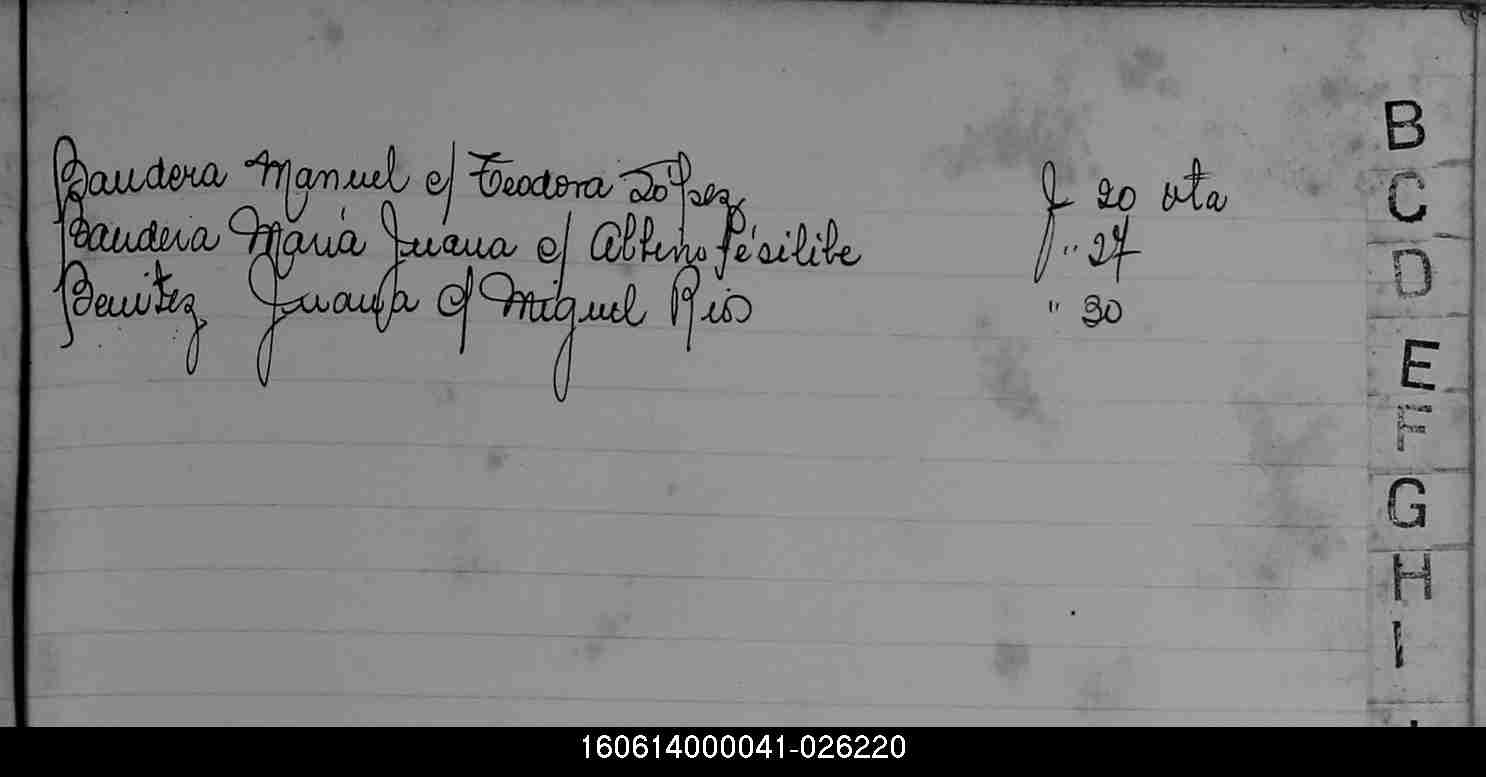 Bandera Manuel c/ Teodora López
Bandera María Juana c/ Albino
Benitez Juana c/ Miguel Rios
f 20 vta
f " 27
" 30
B
C
D
E
F
G
H
I
160614000041-026220